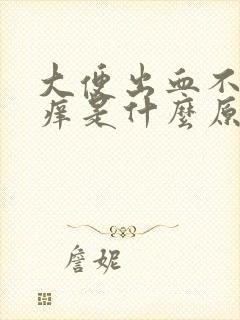 大便出血不
痒是什麼原
詹妮